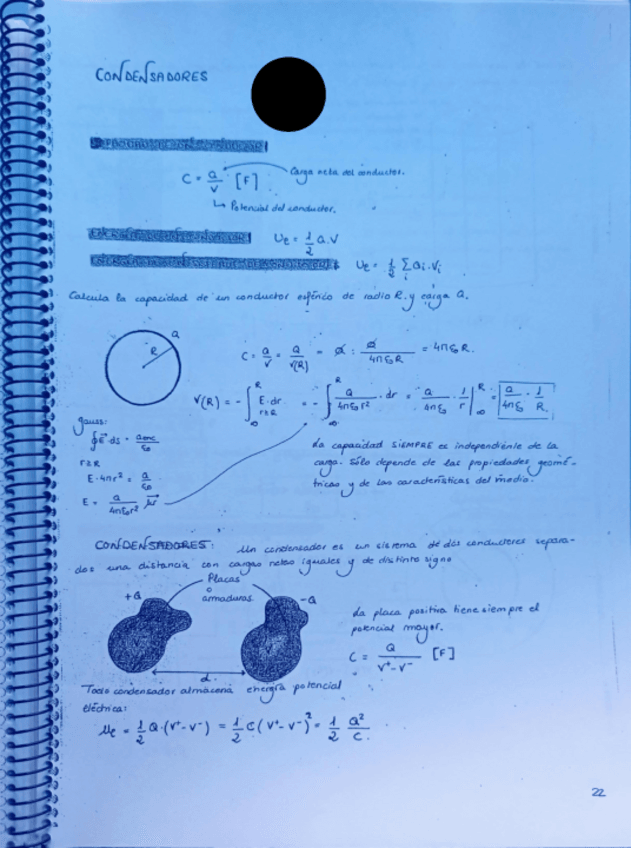 CONDENSADORES
C = Q/V [F] Carga neta del conductor.
↳ Potencial del conductor.
Ue = 1/2 Q.V
Ue = 1/2 ∑i Qi.Vi
Calcula la capacidad de un conductor esférico de radio R. y carga Q.
Q
R
C = Q/V = Q/V(R) = Q : Q/4πε0R = 4πε0R.
V(R) = - ∫∞^R E·dr r≥R = - ∫∞^R Q/4πε0r² · dr = Q/4πε0 · 1/r |∞^R = Q/4πε0 · 1/R
gauss:
∮E·ds = Qenc/ε0
r≥R
E·4πr² = Q/ε0
E = Q/4πε0r² ur
La capacidad SIEMPRE es independiente de la
carga. Sólo depende de las propiedades geomé-
tricas y de las características del medio.
CONDENSADORES: Un condensador es un sistema de dos conductores separa-
dos una distancia con cargas netas iguales y de distinto signo
Placas
o
armaduras
+Q
-Q
d
La placa positiva tiene siempre el
potencial mayor.
C = Q/V⁺-V⁻ [F]
Todo condensador almacena energía potencial
eléctrica:
Ue = 1/2 Q·(V⁺-V⁻) = 1/2 C(V⁺-V⁻)² = 1/2 Q²/C
22